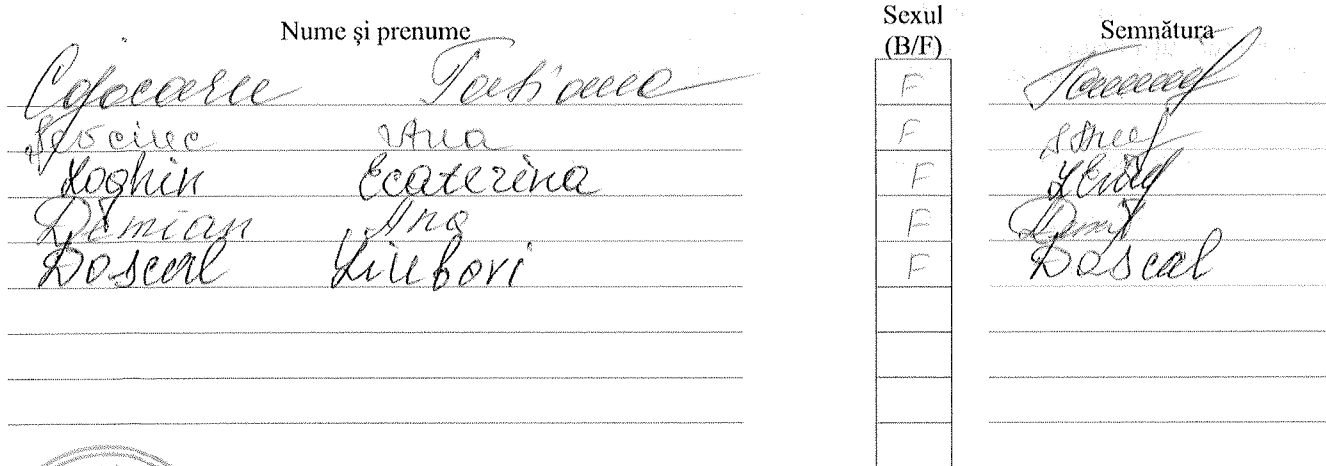 Nume și prenume Sexul (B/F) Semnătura
Cojocaru Tatiana F
Ana F
Loghin Ecaterina F
Dimian Ana F
Dascal Liubovi F Dascal